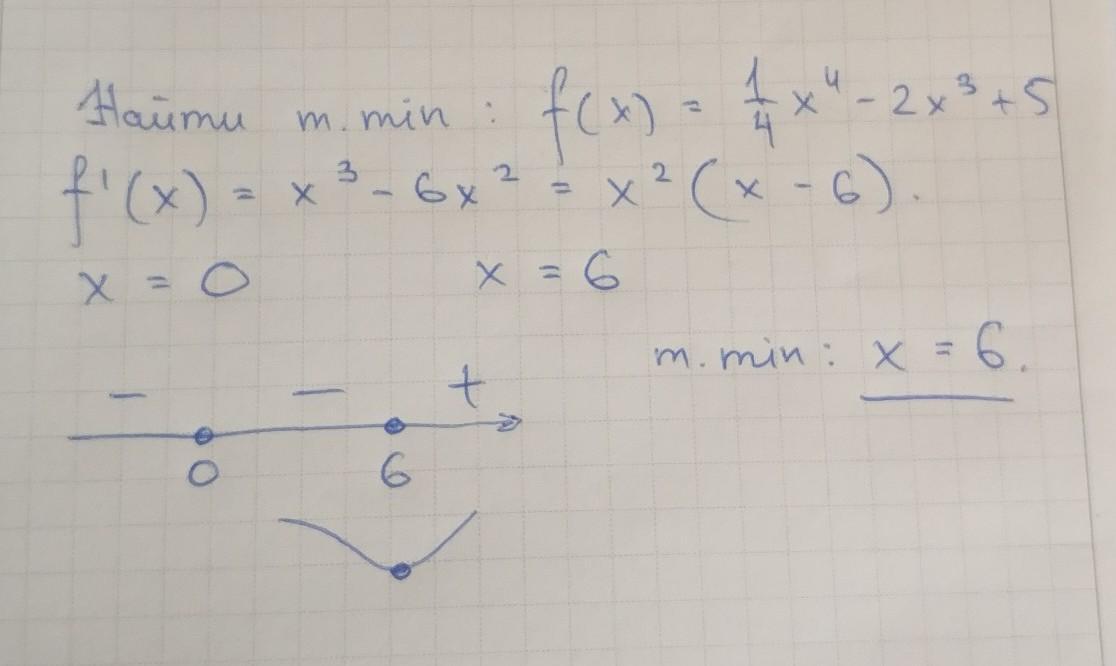 Найти т. min : f(x) = 1/4 x⁴ - 2x³ + 5
f'(x) = x³ - 6x² = x² (x - 6).
x = 0 x = 6
т. min : x = 6.
- - +
0 6